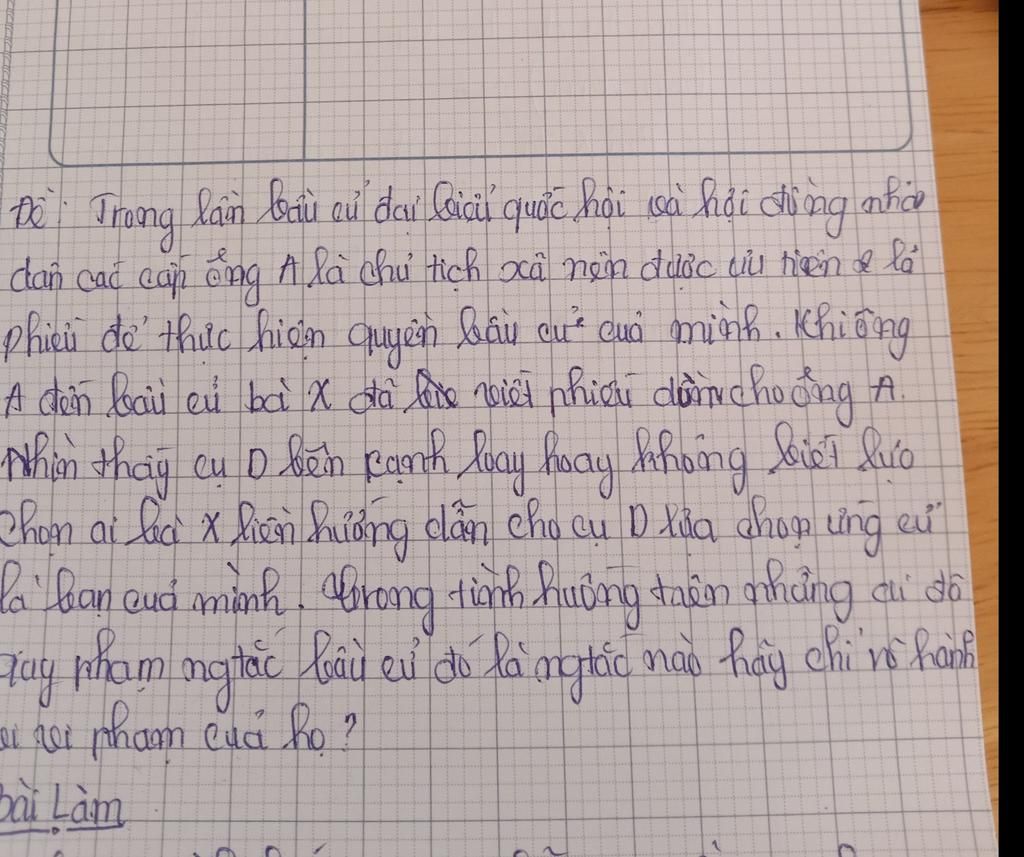 Đề: Trong lần bầu cử đại biểu quốc hội và hội đồng nhân
dân các cấp ông A là chủ tịch xã nên được ưu tiên 2 lá
phiếu để thực hiện quyền bầu cử của mình. Khi ông
A đến bầu cử bà X đã viết phiếu dùm cho ông A.
Nhìn thấy cụ D bên cạnh loay hoay không biết lựa
chọn ai bà X liền hướng dẫn cho cụ D lựa chọn ứng cử
là bạn của mình. Trong tình huống trên những ai đã
phạm ngtắc bầu cử đó là ngtắc nào hãy chỉ rõ hành
vi vi phạm của họ?
bài Làm